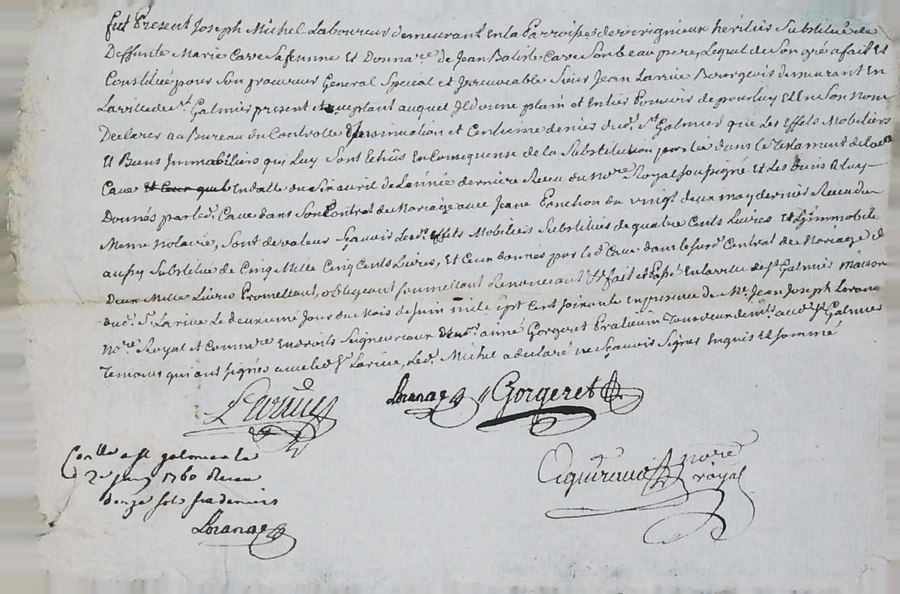 fut Present Joseph Michel Laboureur demeurant En la Parroisse de reivignieux heritier Substitué de
Deffunte Marie Cave sa femme Et Donnare. de Jean Batiste Cave Son beau pere, Lequel de Son gré a fait Et
Constitué pour Son procureur General Special et jrrevocable Sieur Jean Larrive Bourgeois demeurant En
La ville de st. Galmier present acceptant auquel Il donne plain et Entier Pouvoir de pour luy Et En Son nom
Declarer au Bureau du Controlle et centieme denier dudt. St Galmier que Les Effets Mobiliers
Et Biens Immobiliers qui Luy Sont Echus En Consequense de la Substitution portée dans le testament de
Cave En datte du avril de L'année derniere Receu du nore. Royal soussigné Et Les Biens a luy
Donnés par led. Cave dans Son Contrat de Mariage avec Jeane Ponchon du vingt deux may dernier Receu du
Meme notaire, Sont de valeur Sçavoir Lesd. Effets Mobiliers Substitués de quatre Cents Livres Et L'immobile
aussy Substitué de Cinq Mille Cinq Cents Livres, Et Ceux donnés par led. Cave dans le susd. Contrat de Mariage de
Deux Mille Livres Promettant, obligeant soumettant Renonceant & fait et passé En la ville de st. Galmier Maison
dud. Sr. Larive Le deuxieme Jour du Mois de Juin mille sept Cent soixante En presence de Mr. Jean Joseph
nore. Royal et Commre. En droits Seigneuriaux Et Sr. aimé Gorgeret Praticien audt. St Galmier
Temoins qui ont signés avec led. Sr. Larive, Led. Michel a declaré ne Sçavoir Signer Enquis et sommé
Larrive
Gorgeret
nore
royal
Conllé a st galmier le
2e juin 1760 Receu
douze sols six deniers